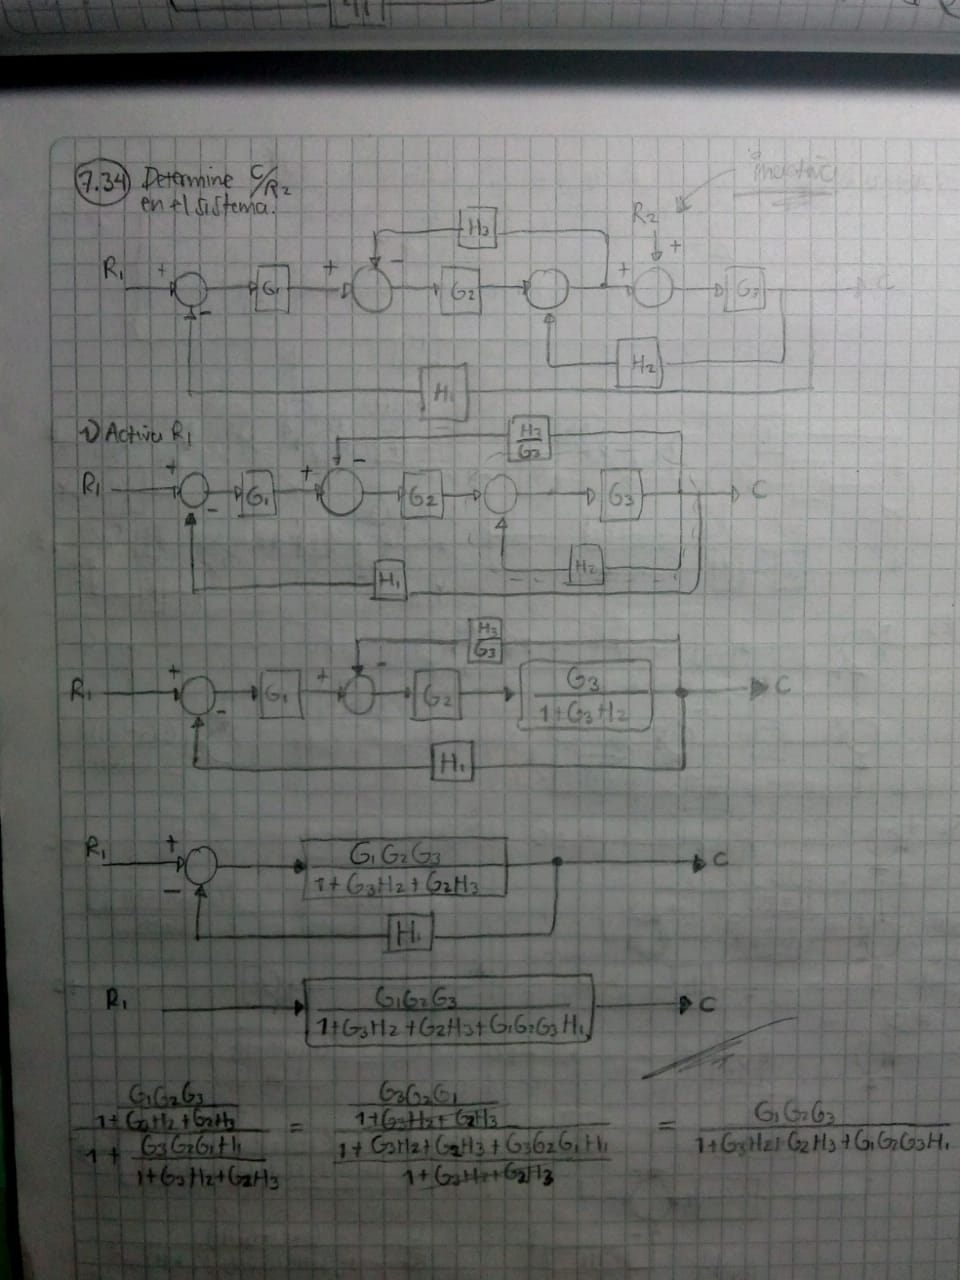 7.34 Determine C/R2
en el sistema.
inactivo
R2
H3
+
R1 + G1 + - G2 + G3 C
-
H2
H1
1) Activa R1
H3/G3
-
R1 + G1 + G2 G3 C
-
H2
H1
H3/G3
-
R1 + G1 + G2 G3/1+G3H2 C
-
H1
R1 + G1G2G3/1+G3H2+G2H3 C
-
H1
R1 G1G2G3/1+G3H2+G2H3+G1G2G3H1 C
G1G2G3/1+G3H2+G2H3 / 1+ G3G2G1H1/1+G3H2+G2H3 = G3G2G1/1+G3H2+G2H3 / 1+G3H2+G2H3+G3G2G1H1/1+G3H2+G2H3 = G1G2G3/1+G3H2+G2H3+G1G2G3H1